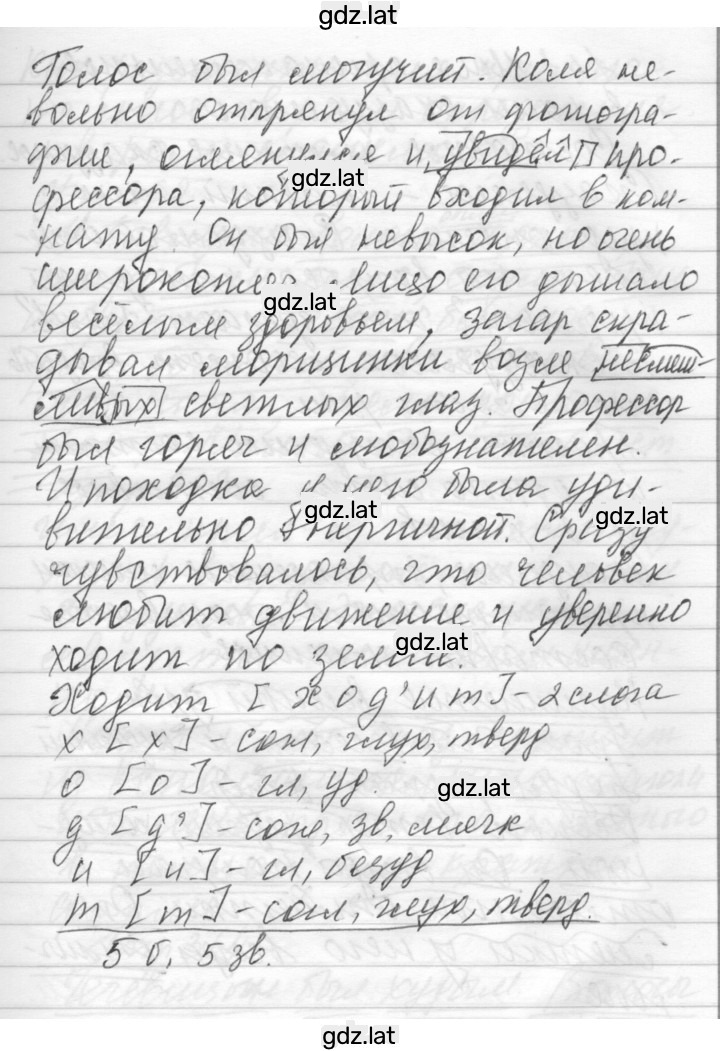 gdz.lat
Голос был могучий. Коля не-
вольно отпрянул от фотогра-
фии, и увидел про-
gdz.lat
фессора, который входил в ком-
нату. Он был невысок, но очень
Лицо его дышало
gdz.lat
весёлым здоровьем, загар скра-
дывал морщинки возле насмеш-
ливых светлых глаз. Профессор
был горяч и любознателен.
И походка у него была уди-
gdz.lat
gdz.lat
вительно энергичной. Сразу
чувствовалось, что человек
любит движение и уверенно
gdz.lat
ходит по земле.
Ходит [ход'ит] - 2 слога
х [х] - согл, глух, тверд
о [о] - гл, уд.
gdz.lat
д [д'] - согл, зв, мягк
и [и] - гл, безуд
т [т] - согл, глух, тверд.
5 б, 5 зв.
gdz.lat